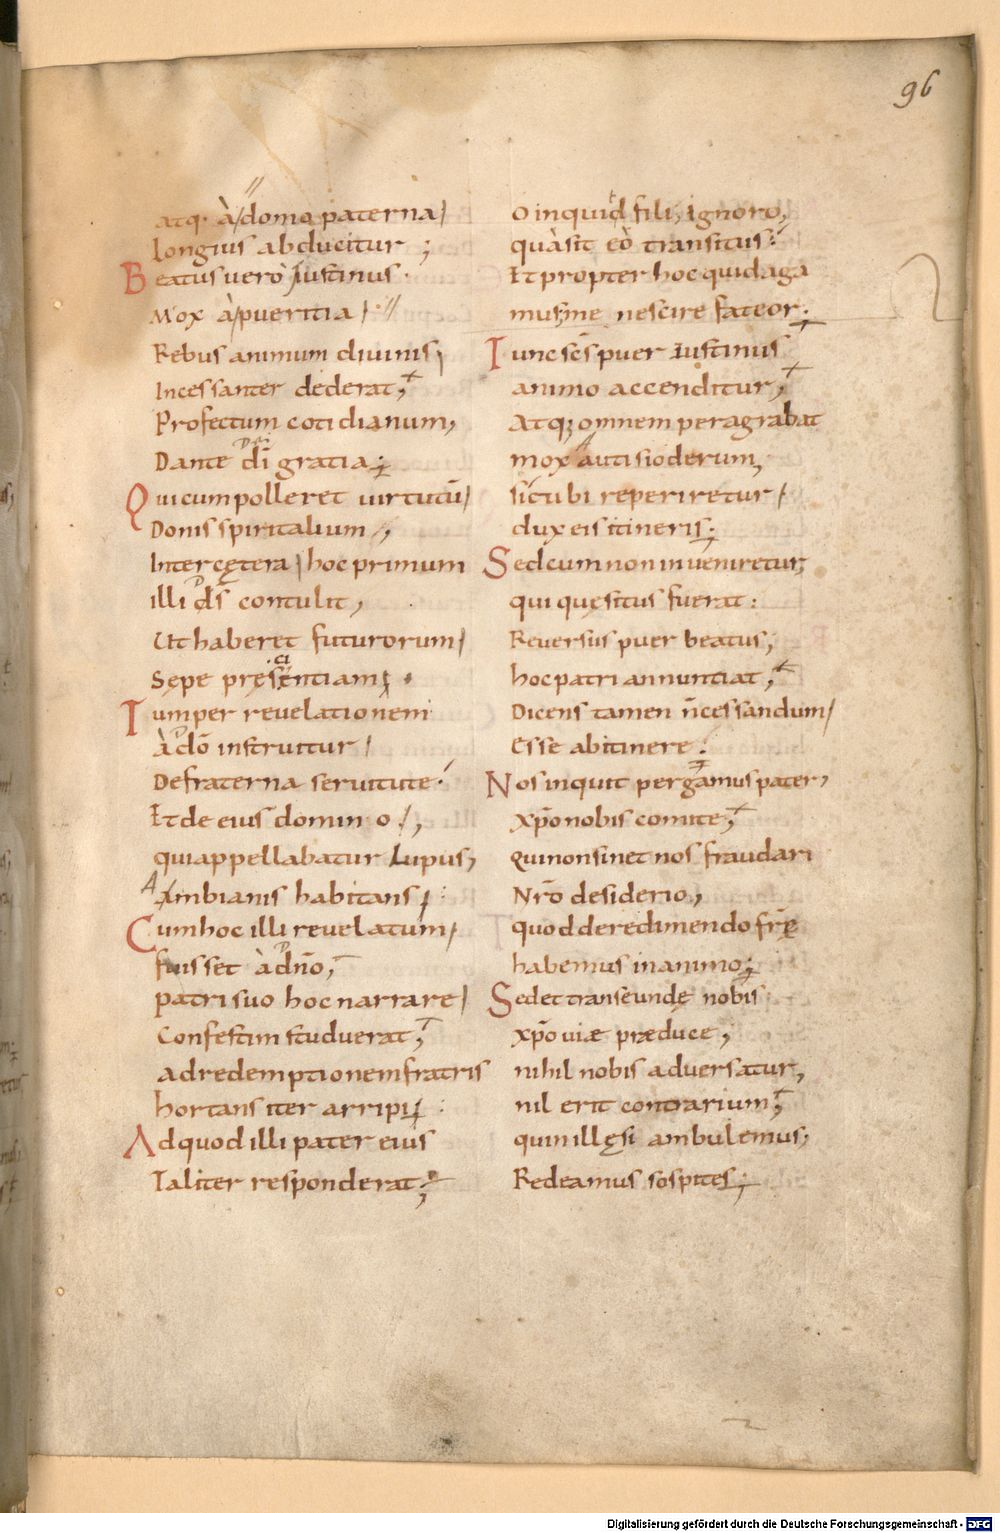 96
atq· à domo paterna
longius abducitur ;
Beatus uerò Iustinus·
Mox à pueritia
Rebus animum diuinis
Incessanter dederat;
Profectum cotidianum,
Dante dī gratia;
Qui cum polleret uirtutū
Donis spiritalium,
Inter cętera hoc primum
illi ds̄ contulit,
Ut haberet futurorum
Sępe pręsentiam;
Tum per reuelationem
à dō instruitur
De fraterna seruitute·
Et de eius domino,
qui appellabatur Lupus,
Ambianis habitans;
Cum hoc illi reuelatum
fuisset à dn̄o,
patri suo hoc narrare
Confestim studuerat,
ad redemptionem fratris
hortans iter arripi;
Ad quod illi pater eius
Taliter responderat;
O inquid fili, ignoro,
quà sit eò transitus:
Et propter hoc quid aga
mus, me nescire fateor;
Tunc sc̄s puer iustinus
animo accenditur;
Atq; omnem peragrabat
mox autisioderum,
sicubi reperiretur
dux eis itineris;
Sed cum non inueniretur,
qui quęsitus fuerat:
Reuersus puer beatus,
hoc patri annuntiat;
Dicens tamen n̄ cessandum
esse ab itinere:
Nos inquit pergamus pater,
xp̄o nobis comite;
Qui non sinet nos fraudari
Nr̄o desiderio,
quod de redimendo fr̄e
habemus in animo;
Sed et transeundę nobis
xp̄o uiæ præduce,
nihil nobis aduersatur,
nil erit contrarium;
quin illęsi ambulemus,
Redeamus sospites;
Digitalisierung gefördert durch die Deutsche Forschungsgemeinschaft - DFG